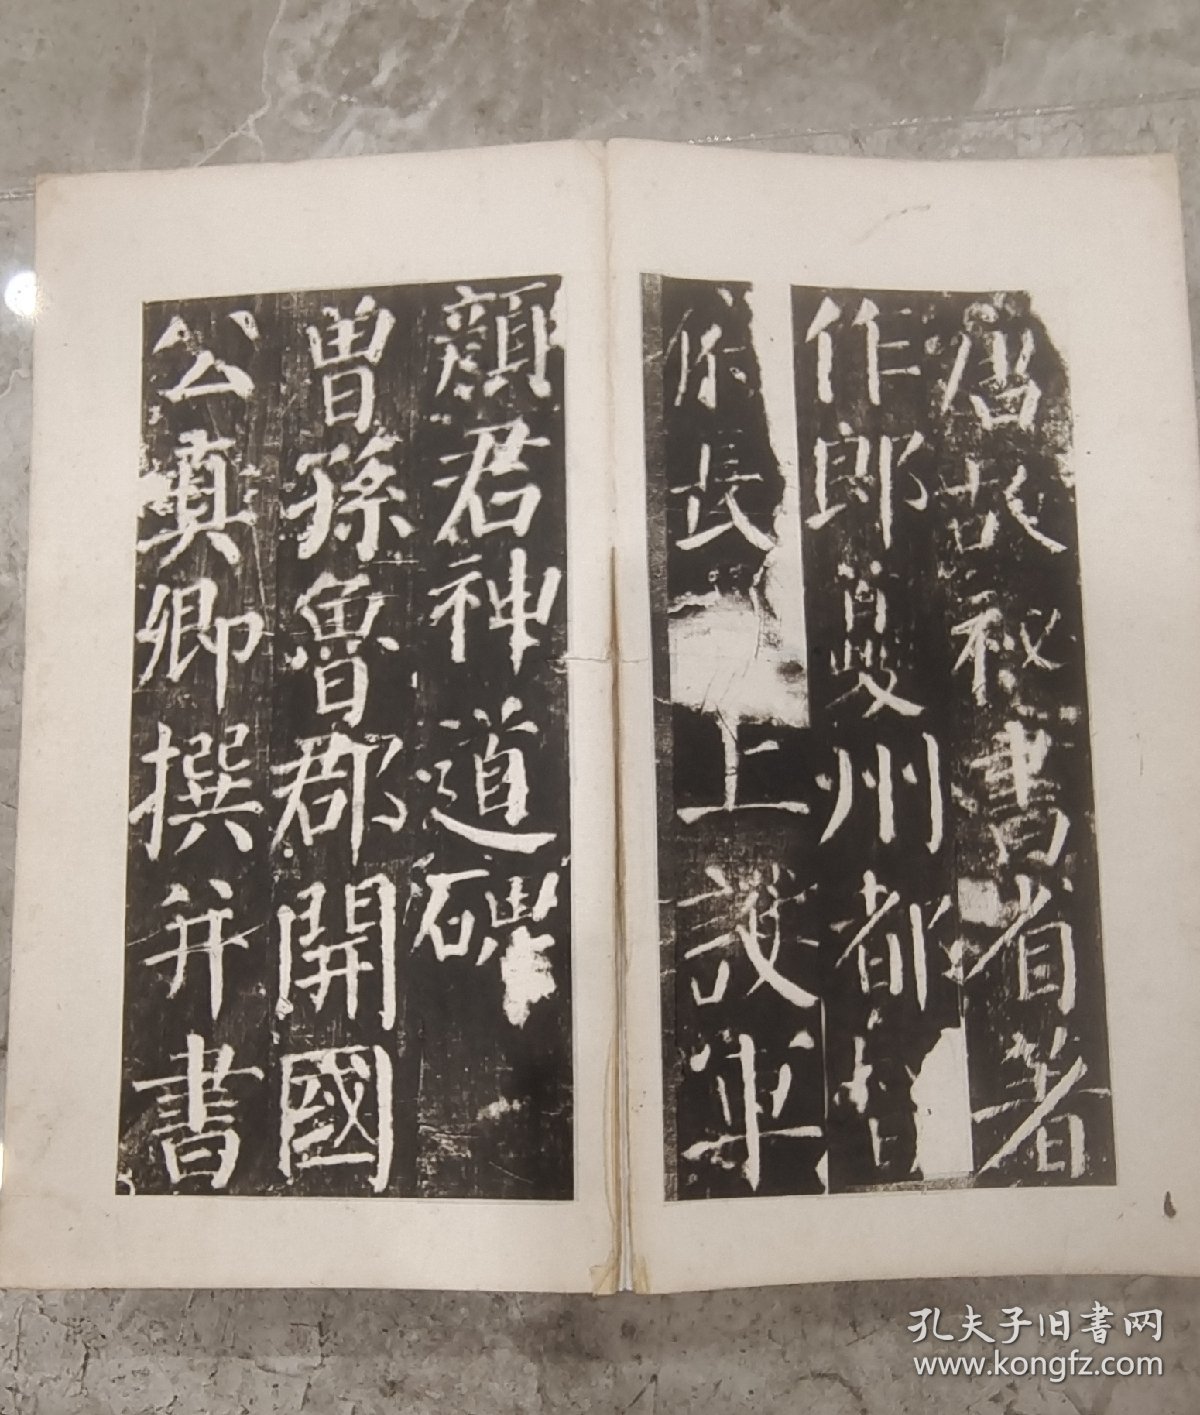 唐故祕書省著
作郎夔州都督
府長上護軍
顏君神道碑
曾孫魯郡開國
公真卿撰并書
孔夫子旧書网
www.kongfz.com